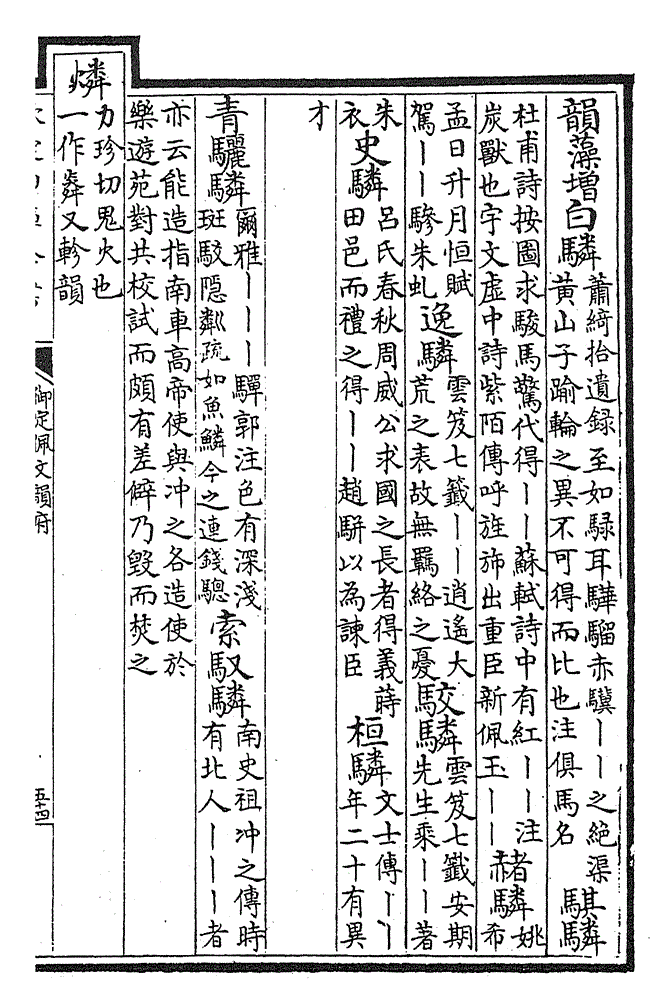 韻藻增白驎
蕭綺拾遺録至如騄耳驊騮赤驥丨丨之絶渠
黃山子踰輪之異不可得而比也注俱馬名
騏驎
杜甫詩按圖求駿馬驚代得丨丨蘇軾詩中有紅丨丨注
炭獸也宇文虛中詩紫陌傳呼旌斾出重臣新佩玉丨丨
赭驎
姚
希
孟日升月恒賦
駕丨丨驂朱虬
逸驎
雲笈七籤丨丨逍遙大
荒之表故無羈絡之憂
駮驎
雲笈七籤安期
先生乘丨丨著
朱
衣
史驎
呂氏春秋周威公求國之長者得義蒔
田邑而禮之得丨丨趙駢以為諫臣
桓驎
文士傳丨丨
年二十有異
才
青驪驎
爾雅丨丨丨驒郭注色有深淺
斑駮隱粼疏如魚鱗今之連錢驄
索馭驎
南史祖冲之傳時
有北人丨丨丨者
亦云能造指南車高帝使與冲之各造使於
樂遊苑對共校試而頗有差僻乃毀而焚之
燐
力珍切鬼火也
一作粦又軫韻
御定佩文韻府
五十四